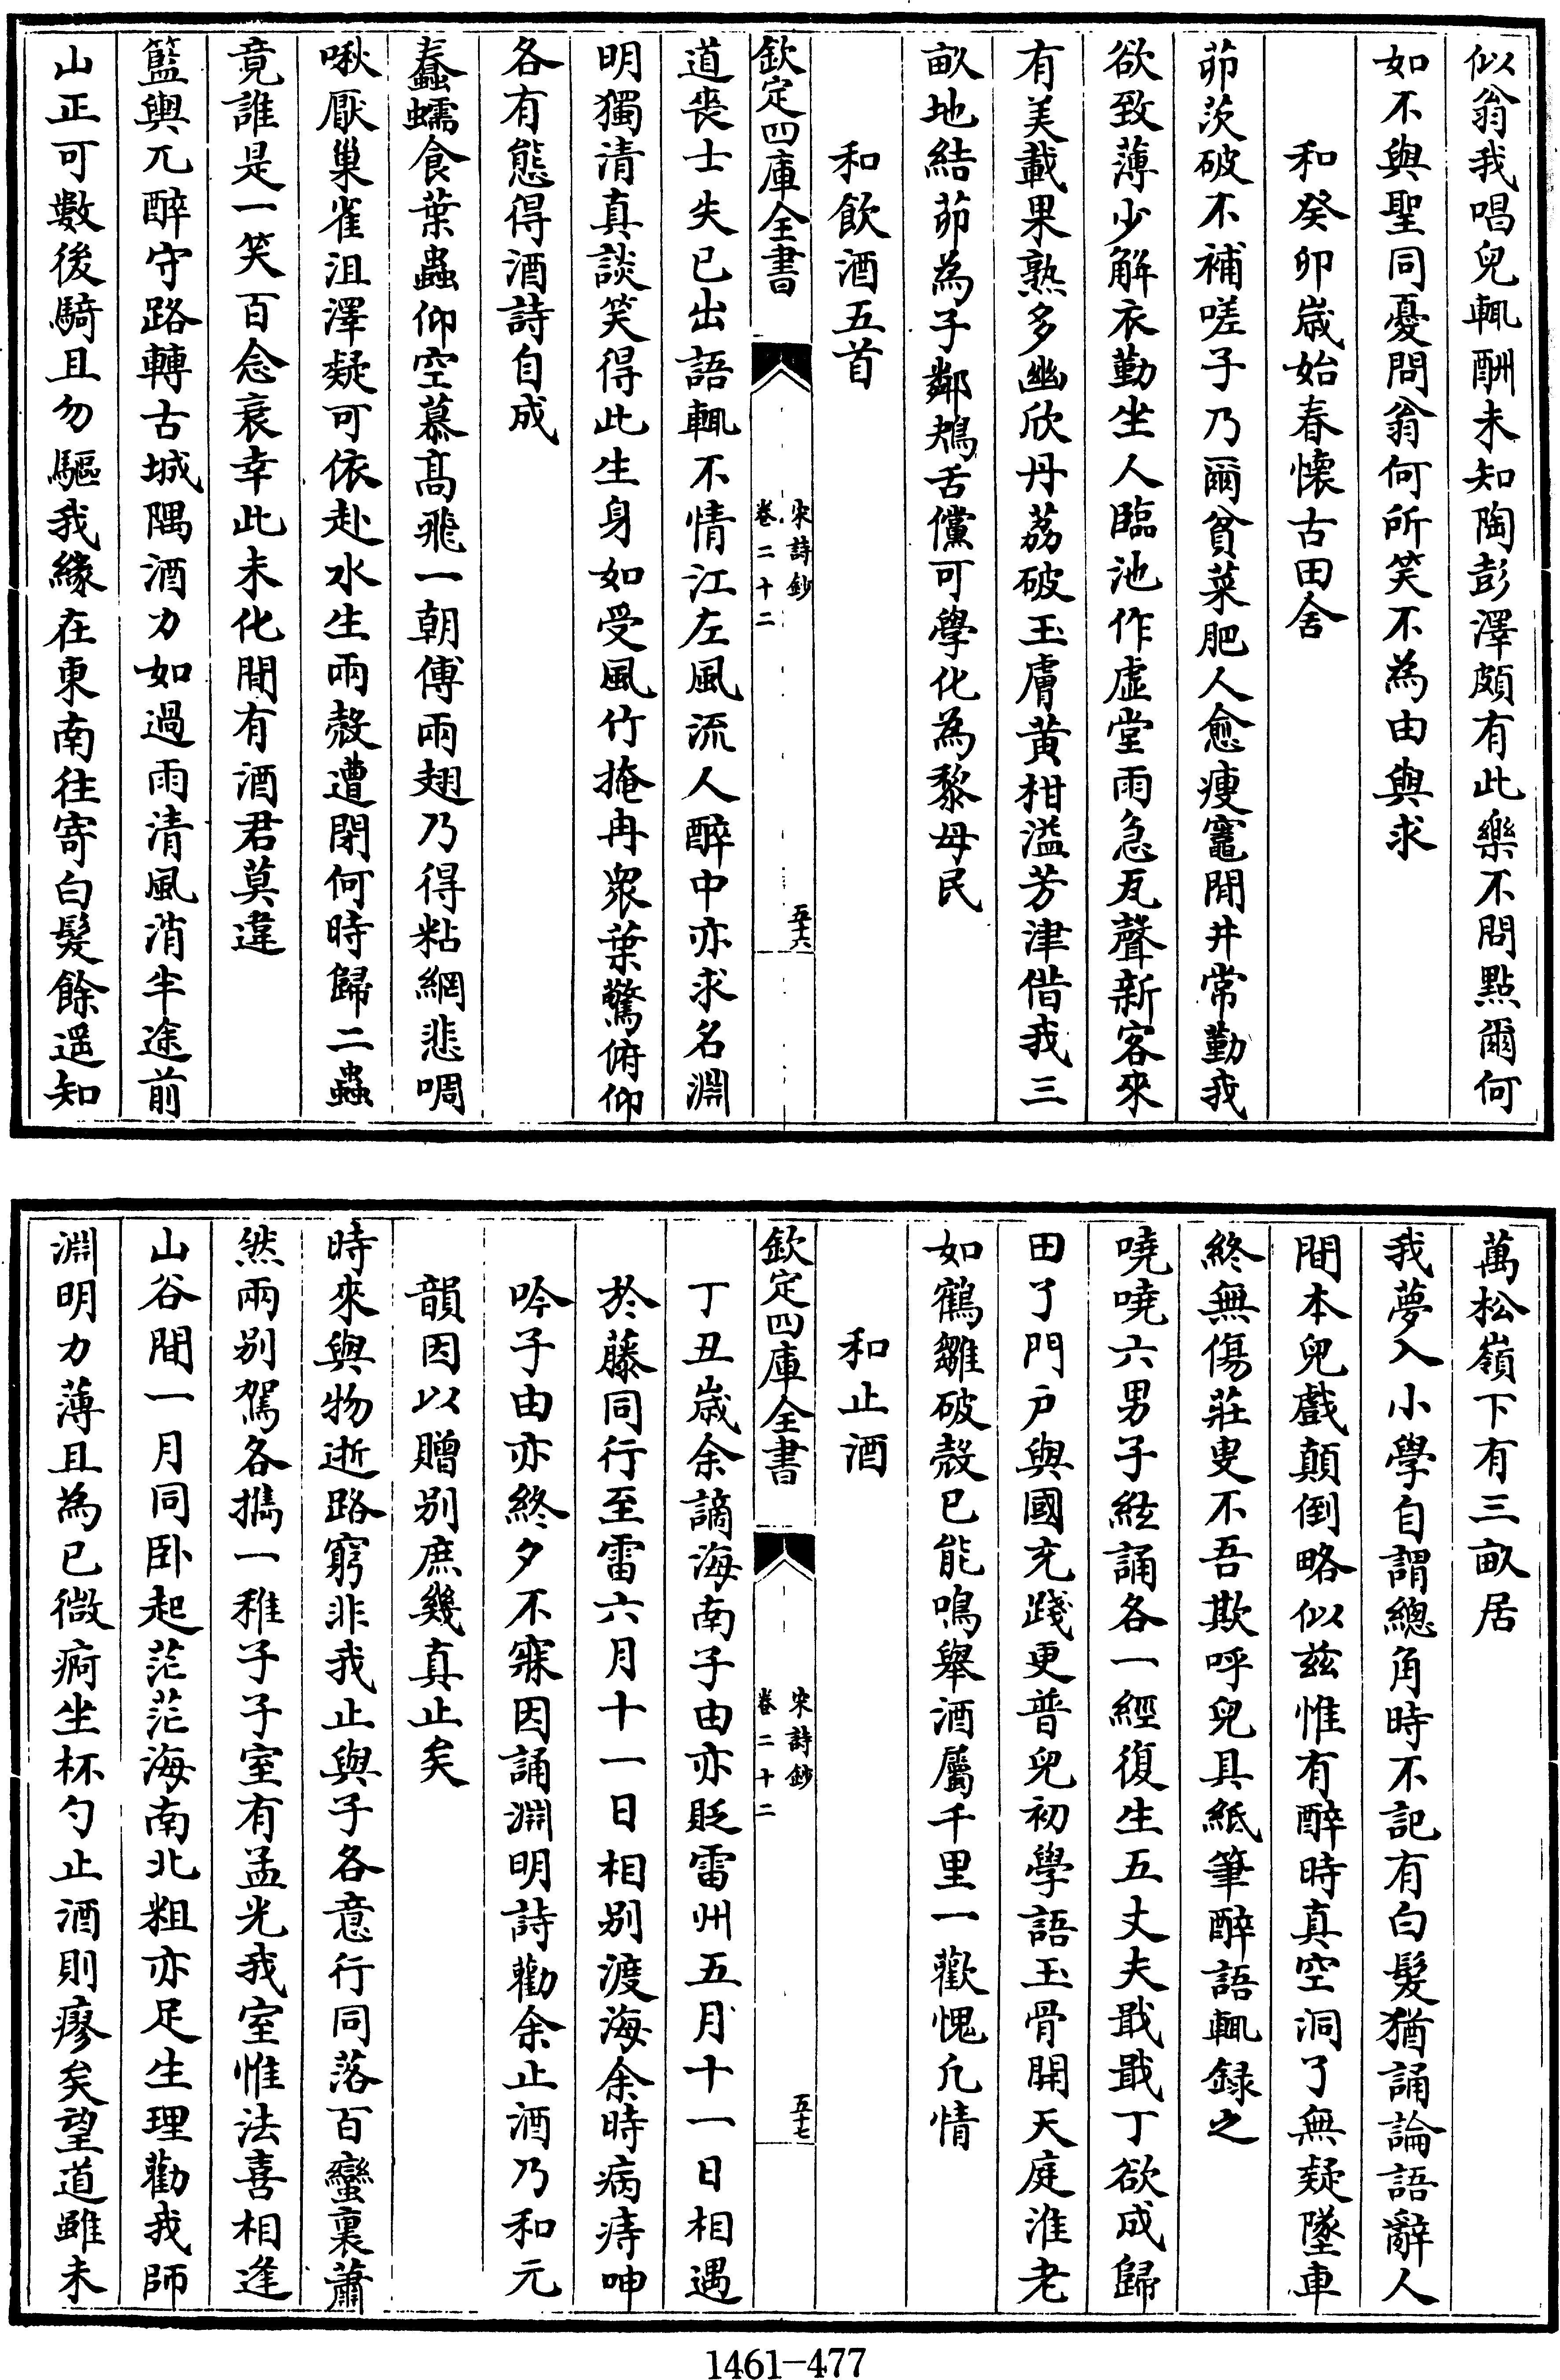 似翁我唱兒輒酬未知陶彭澤頗有此樂不問點爾何
如不與聖同憂問翁何所笑不為由與求
和癸卯歲始春懷古田舍
茆茨破不補嗟子乃爾貧菜肥人愈瘦竈閒井常勤我
欲致薄少解衣勤坐人臨池作虛堂雨急瓦聲新客來
有美載果熟多幽欣丹荔破玉膚黃柑溢芳津借我三
畝地結茆為子鄰鴂舌儻可學化為黎母民
和飲酒五首
欽定四庫全書
宋詩鈔
卷二十二
五十六
道喪士失已出語輒不情江左風流人醉中亦求名淵
明獨清真談笑得此生身如受風竹掩冉衆葉驚俯仰
各有態得酒詩自成
蠢蠕食葉蟲仰空慕髙飛一朝傅兩翅乃得粘網悲啁
啾厭巢雀沮澤疑可依赴水生兩殼遭閉何時歸二蟲
竟誰是一笑百念衰幸此未化間有酒君莫違
籃輿兀醉守路轉古城隅酒力如過雨清風消半途前
山正可數後騎且勿驅我緣在東南往寄白髮餘遥知
萬松嶺下有三畝居
我夢入小學自謂總角時不記有白髮猶誦論語辭人
間本兒戲顛倒略似兹惟有醉時真空洞了無疑墜車
終無傷莊叟不吾欺呼兒具紙筆醉語輒録之
嘵嘵六男子絃誦各一經復生五丈夫戢戢丁欲成歸
田了門户與國充踐更普兒初學語玉骨開天庭淮老
如鶴雛破殼已能鳴舉酒屬千里一歡愧凡情
和止酒
欽定四庫全書
宋詩鈔
卷二十二
五十七
丁丑歲余謫海南子由亦貶雷州五月十一日相遇
於藤同行至雷六月十一日相别渡海余時病痔呻
吟子由亦終夕不寐因誦淵明詩勸余止酒乃和元
韻因以贈别庶幾真止矣
時來與物逝路窮非我止與子各意行同落百蠻裏蕭
然兩别駕各攜一稚子子室有孟光我室惟法喜相逢
山谷間一月同卧起茫茫海南北粗亦足生理勸我師
淵明力薄且為已微疴坐杯勺止酒則瘳矣望道雖未
1461—477